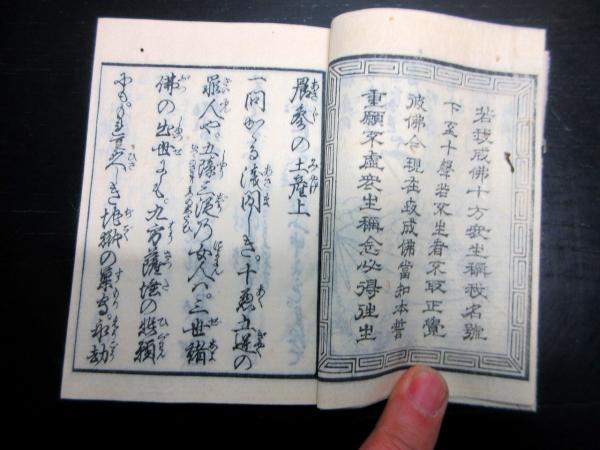 若我成佛十方衆生稱我名號
下至十聲若不生者不取正覺
彼佛今現在世成佛當知本誓
重願不虚衆生稱念必得往生
晨参の土産上
一向かゝる浅間しき。十悪五逆の
罪人や。五障三従乃女人ハ。三世諸
佛の出世にも。九方薩埵の悲願
にも。もれ久しき地獄の巣守永劫